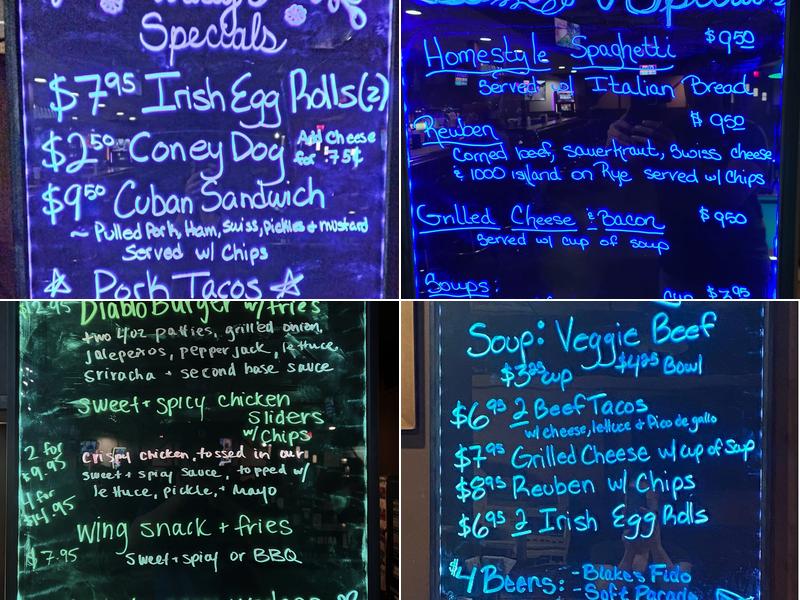 Specials
$7.95 Irish Egg Rolls (2)
$2.50 Coney Dog Add Cheese for .75¢
$9.50 Cuban Sandwich
~ Pulled Pork, Ham, Swiss, Pickles + mustard
Served w/ Chips
☆ Pork Tacos ☆
Specials
Homestyle Spaghetti $9.50
Served w/ Italian Bread
Reuben $9.50
Corned beef, sauerkraut, Swiss cheese,
& 1000 island on Rye served w/ Chips
Grilled Cheese & Bacon $9.50
Served w/ cup of soup
Soups:
Cup $3.95
$12.95 Diablo Burger w/ fries
two 4oz patties, grilled onion,
jalepeños, pepper jack, lettuce,
sriracha + second base sauce
sweet + spicy chicken
sliders
w/ chips
2 for $9.95
4 for $14.95
crispy chicken, tossed in our
sweet + spicy sauce, topped w/
lettuce, pickle, + mayo
wing snack + fries
$7.95 sweet + spicy or BBQ
Soup: Veggie Beef
$3.25 cup $4.25 Bowl
$6.95 2 Beef Tacos
w/ cheese, lettuce & Pico de gallo
$7.95 Grilled Cheese w/ cup of Soup
$8.95 Reuben w/ Chips
$6.95 2 Irish Egg Rolls
$4 Beers: - Blakes Fido
- Soft Parade